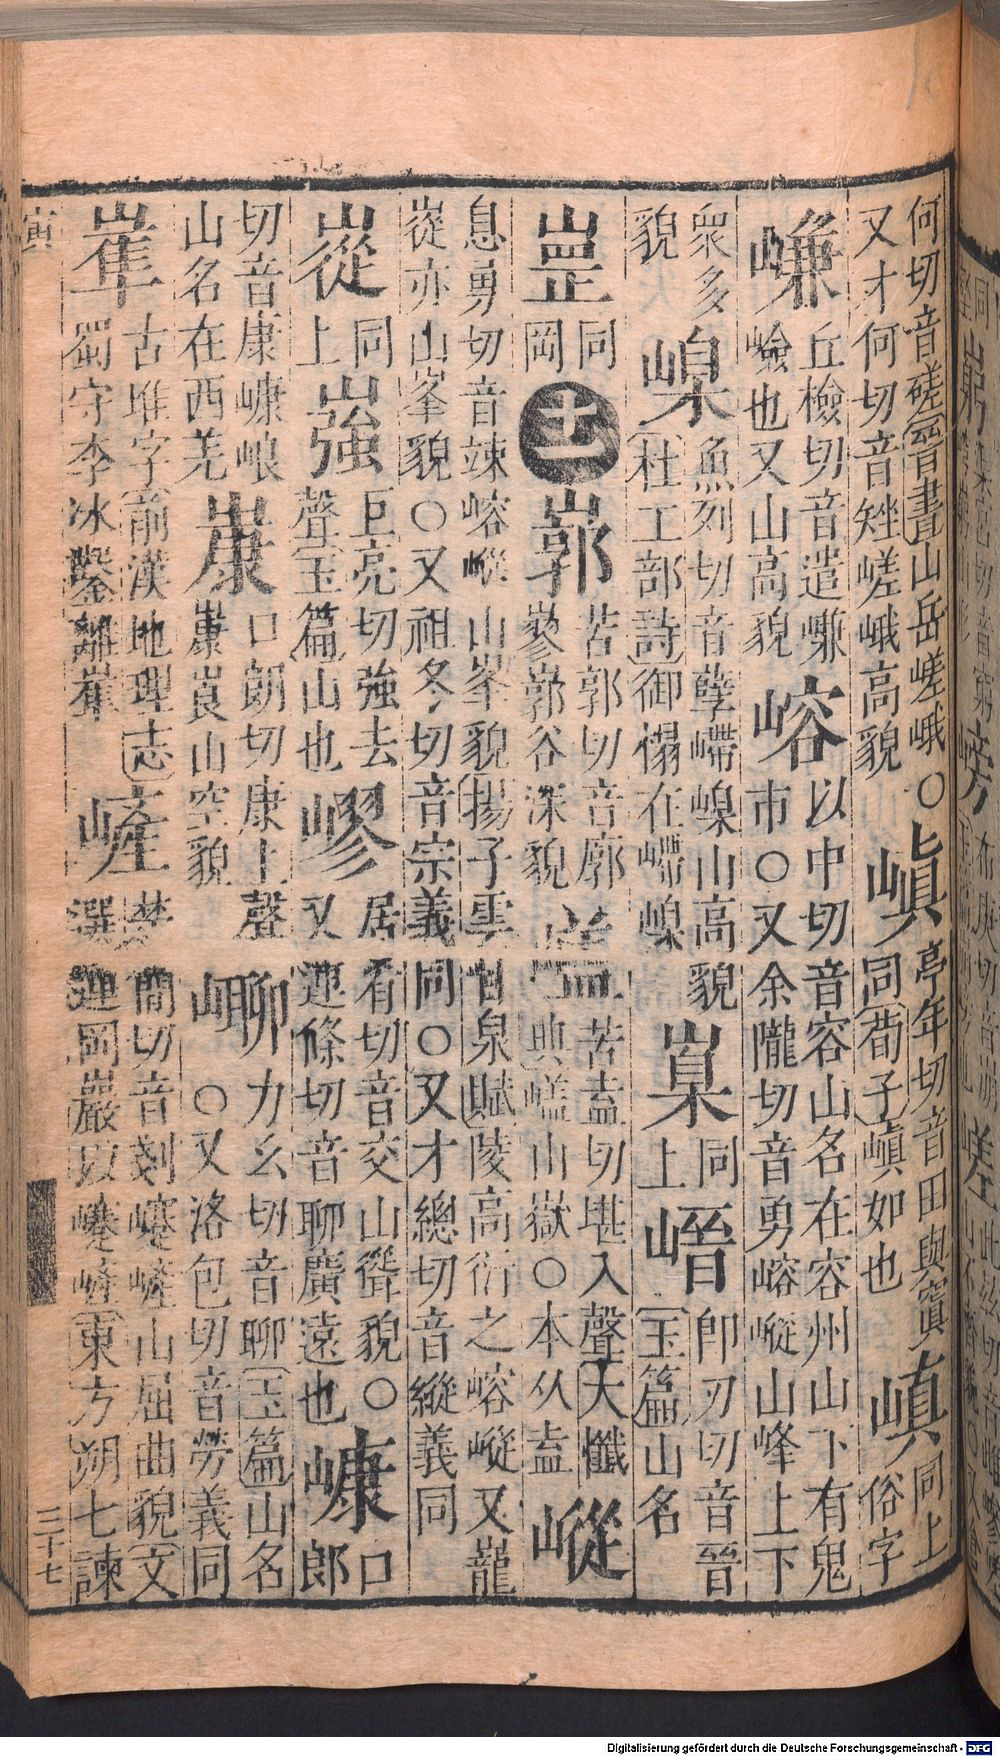 何切音磋晉書山岳嵯峨〇
又才何切音矬嵯峨高貌
嵮
亭年切音田與窴
同荀子嵮如也
同上
俗字
嵰
丘檢切音遣嵰
嶮也又山高貌
嵱
以中切音容山名在容州山下有鬼
市〇又余隴切音勇嵱嵷山峰上下
衆多
貌
嵲
魚列切音孽嵽嵲山高貌
杜工部詩御榻在嵽嵲
同
上
即刃切音晉
玉篇山名
同
岡
十一
苦郭切音廓
谷深貌
苦盍切堪入聲大懺
典山嶽〇本从盍
嵷
息勇切音竦嵱嵷山峯貌揚子雲甘泉賦陵高衍之嵱嵷又巃
嵷亦山峯貌〇又祖冬切音宗義同〇又才總切音縱義同
同
上
巨亮切強去
聲玉篇山也
嵺
居有切音交山聳貌〇
又連條切音聊廣遠也
嵻
口
郎
切音康嵻㟍
山名在西羌
口朗切康上聲
崀山空貌
力幺切音聊玉篇山名
〇又洛包切音勞義同
古堆字前漢地理志
蜀守李冰鑿離
嵼
楚簡切音剗嵼山屈曲貌文
選連岡巖以嵼東方朔七諫
寅
三十七
Digitalisierung gefördert durch die Deutsche Forschungsgemeinschaft - DFG